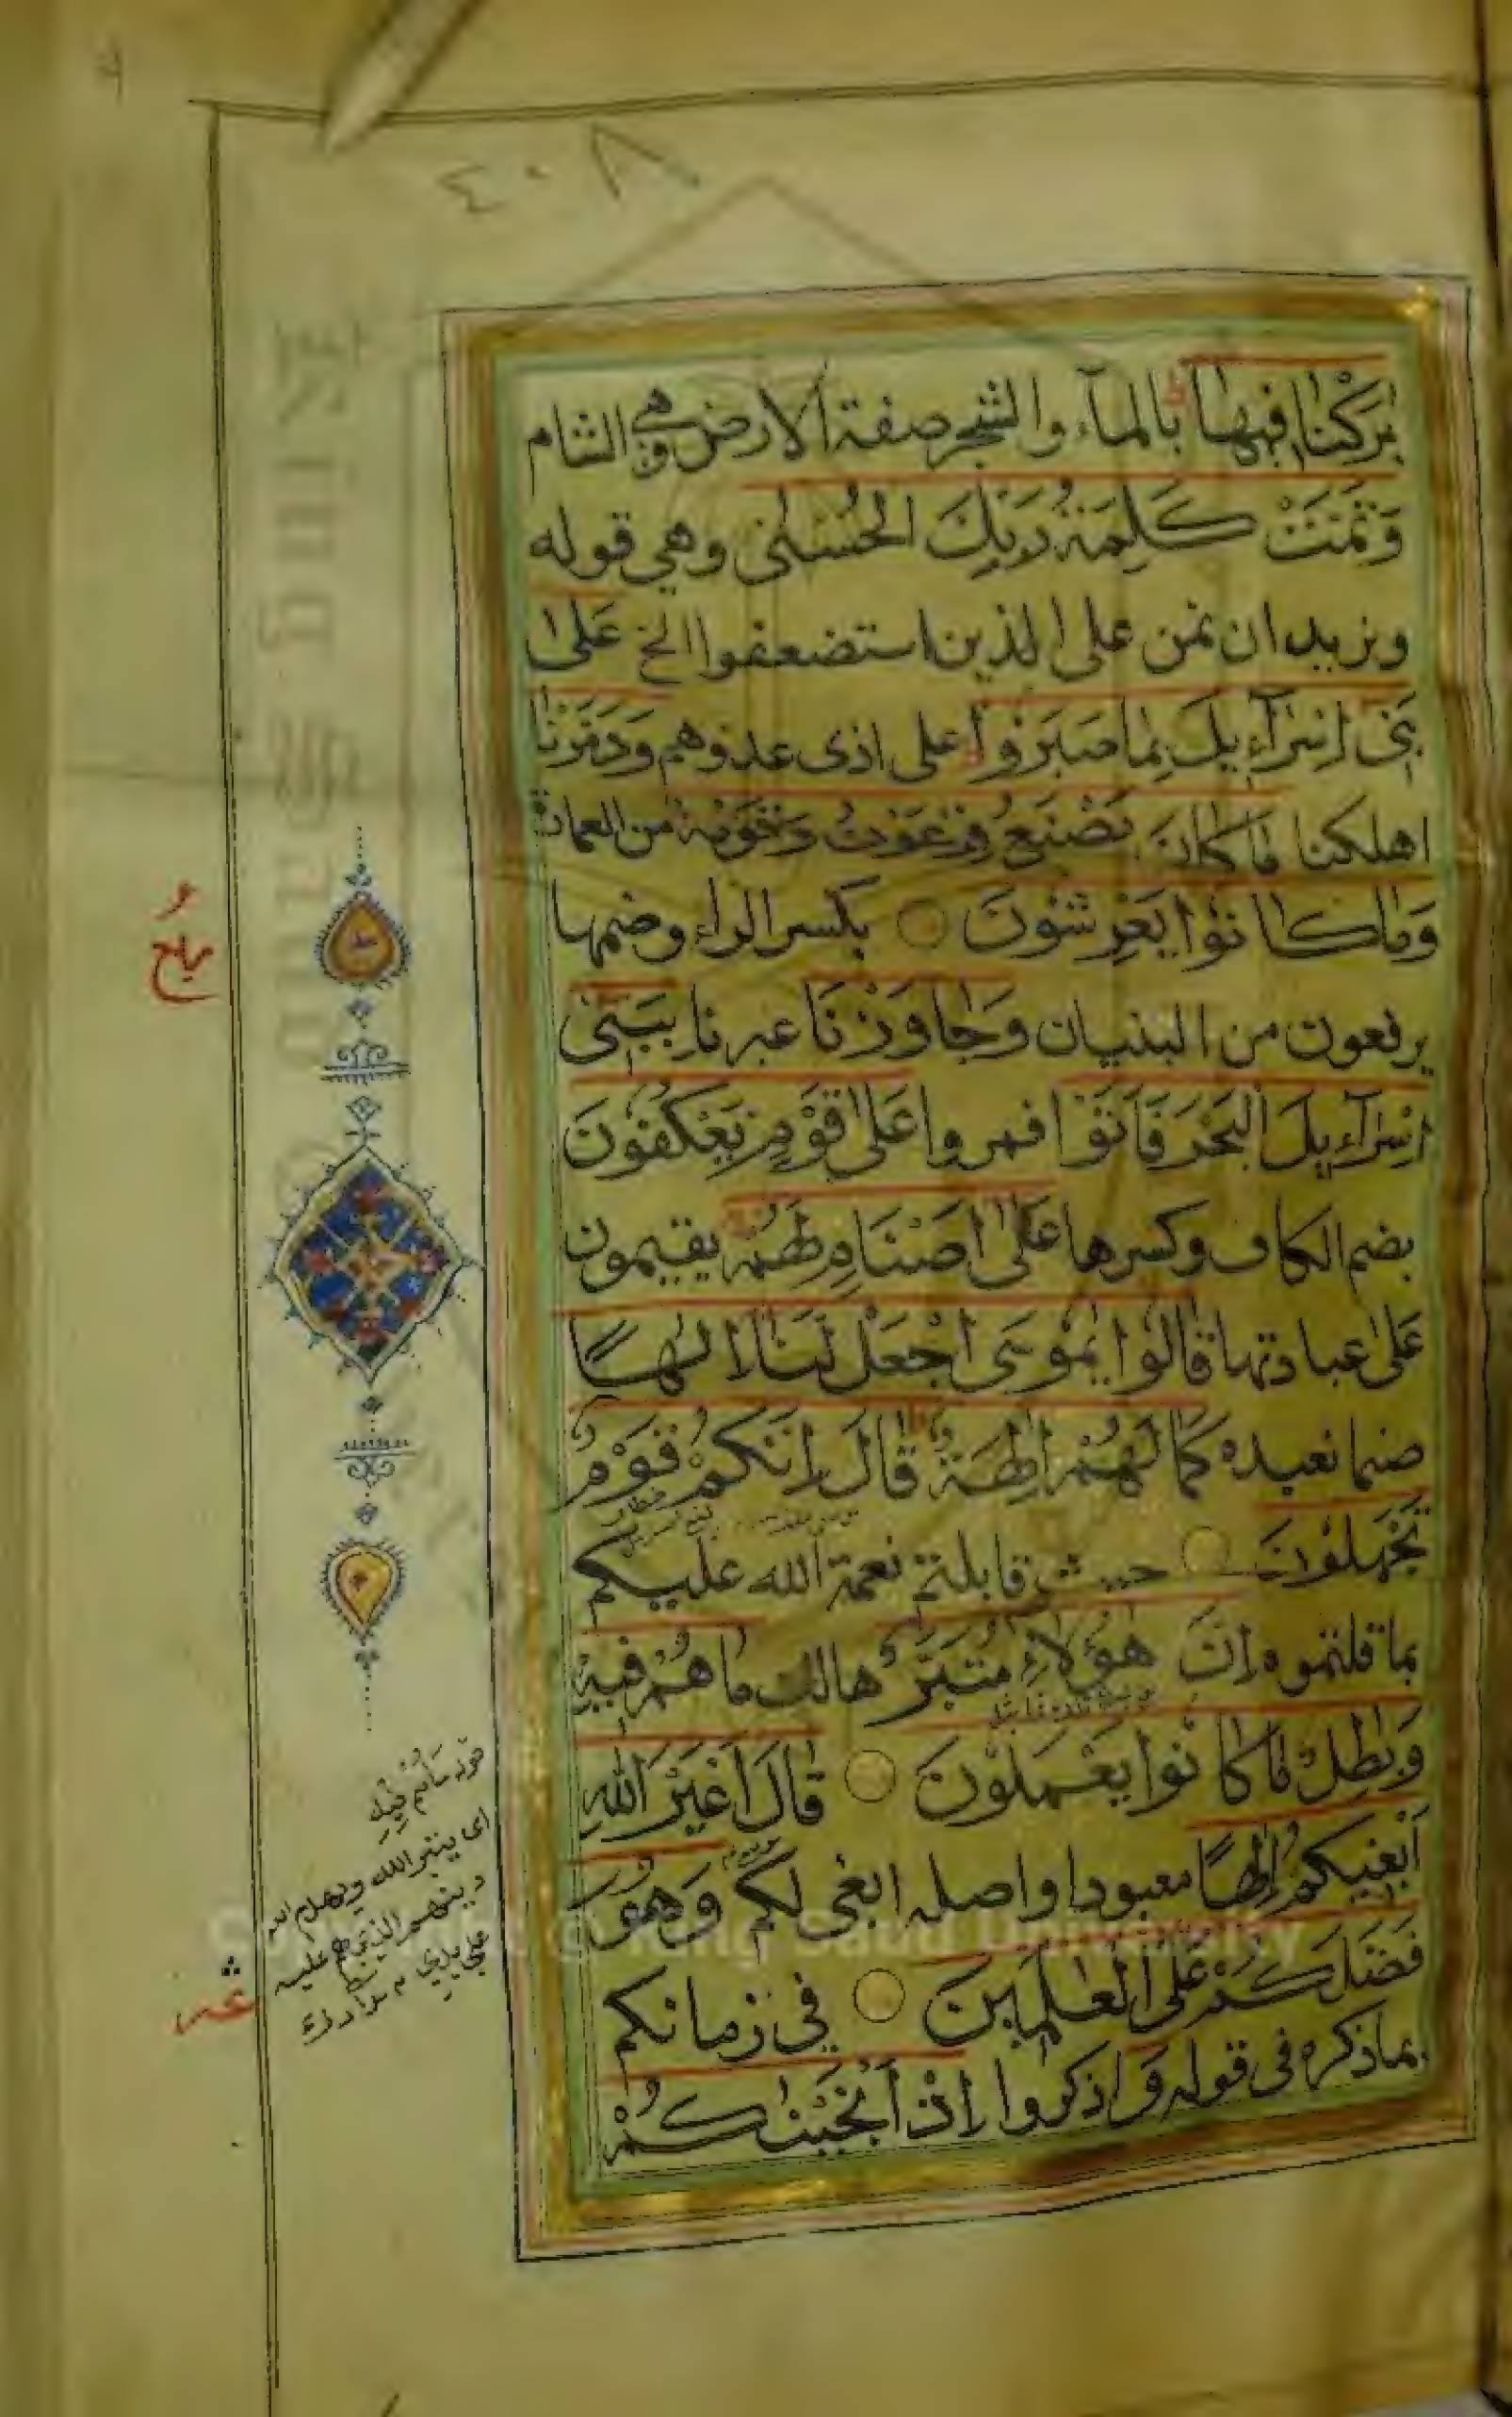 ٤٠٨
بٰرَكْنَا فِيهَا بالماء والشجر صفة الارض وهي الشام
وَتَمَّتْ كَلِمَةُ رَبِّكَ الْحُسْنٰى وهي قوله
ونريد ان نمن على الذين استضعفوا الخ عَلٰى
بَنِى اِسْرَآءِيلَ بِمَا صَبَرُوْا على اذى عدوهم وَدَمَّرْنَا
اهلكنا مَا كَانَ يَصْنَعُ فِرْعَوْنُ وَقَوْمُهُ من العمارة
وَمَا كَانُوْا يَعْرِشُونَ بكسر الراء وضمها
يرفعون من البنيان وَجَاوَزْنَا عبرنا بِبَنِى
اِسْرَآءِيلَ الْبَحْرَ فَاَتَوْا فمروا عَلٰى قَوْمٍ يَعْكُفُونَ
بضم الكاف وكسرها عَلٰى اَصْنَامٍ لَهُمْ يقيمون
على عبادتها قَالُوا يٰمُوسَى اجْعَلْ لَنَا اِلٰهًا
صنما نعبده كَمَا لَهُمْ اٰلِهَةٌ قَالَ اِنَّكُمْ قَوْمٌ
تَجْهَلُونَ حيث قابلتم نعمة الله عليكم
بما قلتموه اِنَّ هٰؤُلَاءِ مُتَبَّرٌ هالك مَا هُمْ فِيهِ
وَبٰطِلٌ مَا كَانُوا يَعْمَلُونَ قَالَ اَغَيْرَ اللهِ
اَبْغِيكُمْ اِلٰهًا معبودا واصله ابغى لكم وَهُوَ
فَضَّلَكُمْ عَلَى الْعٰلَمِينَ في زمانكم
بما ذكره فى قوله وَاذكروا اِذْ اَنْجَيْنٰكُمْ
ما هم فيه
اى يتبر الله ويهدم الله
دينهم الذي هم عليه
على يدي
Copyright © King Saud University